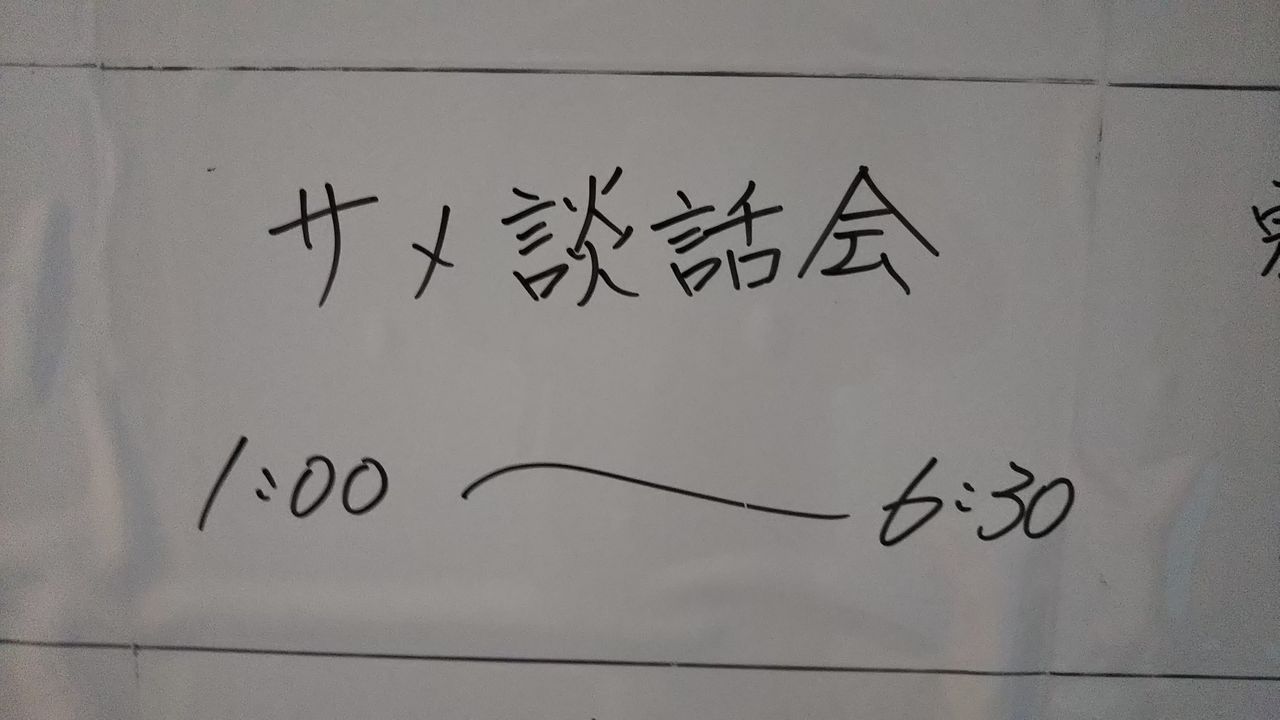 サメ談話会
1:00 〜 6:30